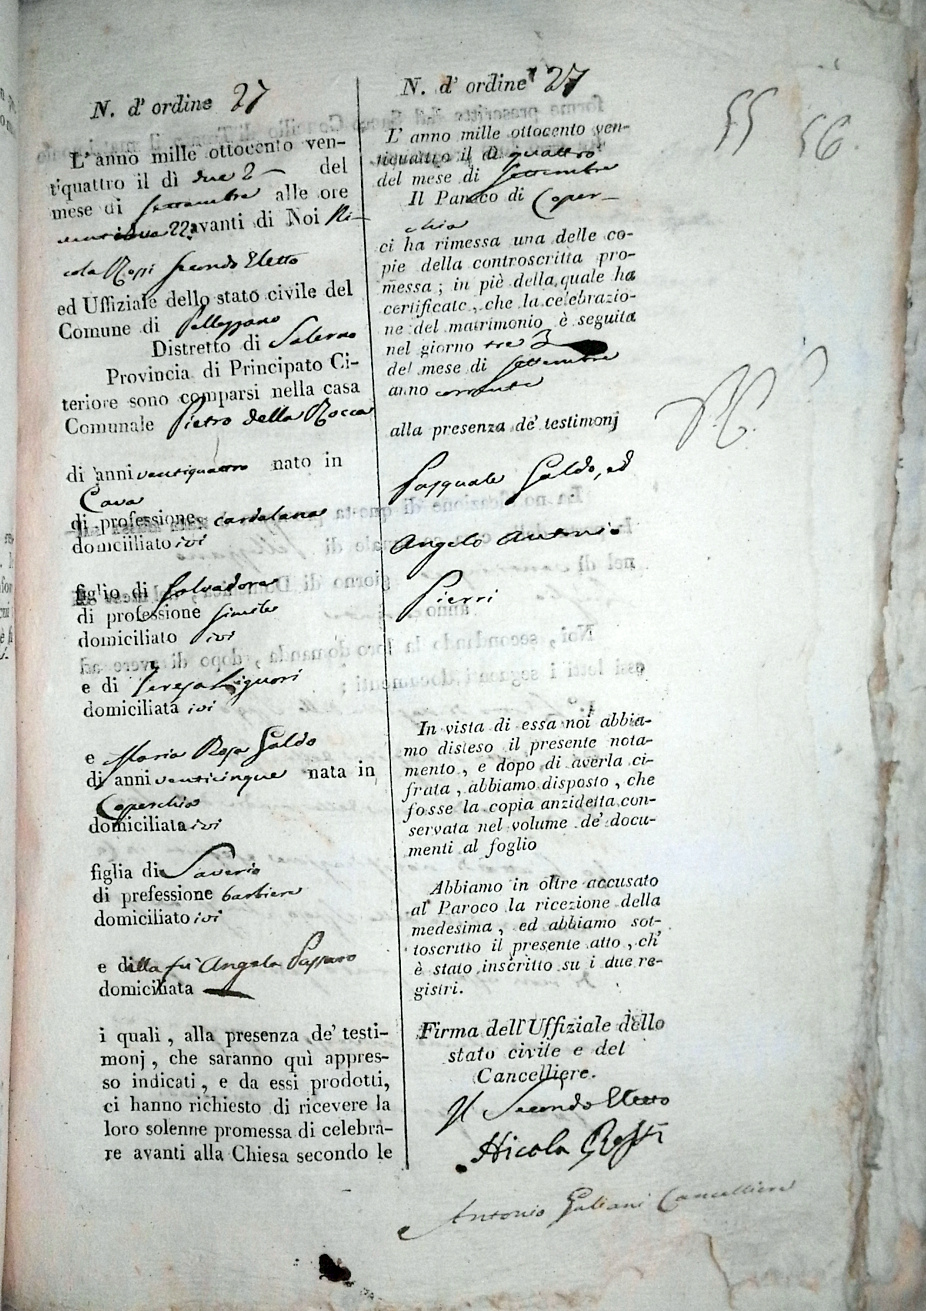 N. d' ordine 27
L' anno mille ottocento ven-
t'quattro il dì due 2 del
mese di Settembre alle ore
22 avanti di Noi Ni-
cola Rossi Secondo Eletto
ed Uffiziale dello stato civile del
Comune di Pellezzano
Distretto di Salerno
Provincia di Principato Ci-
teriore sono comparsi nella casa
Comunale Pietro della Rocca
di anni ventiquattro nato in
Cava
di professione cardalana
domiciliato ivi
figlio di Salvadore
di professione simile
domiciliato ivi
e di Teresa Liguori
domiciliata ivi
e Maria Rosa Galdo
di anni venticinque nata in
Coperchia
domiciliata ivi
figlia di Saverio
di prefessione barbiere
domiciliato ivi
e di lla fù Angela Passaro
domiciliata
i quali, alla presenza de' testi-
monj, che saranno quì appres-
so indicati, e da essi prodotti,
ci hanno richiesto di ricevere la
loro solenne promessa di celebra-
re avanti alla Chiesa secondo le
N. d' ordine 27
L' anno mille ottocento ven-
tiquattro il dì quattro
del mese di Settembre
Il Paroco di Coper-
chia
ci ha rimessa una delle co-
pie della controscritta pro-
messa; in piè della quale ha
certificato, che la celebrazio-
ne del matrimonio è seguita
nel giorno tre 3
del mese di Settembre
anno corrente
alla presenza de' testimonj
Pasquale Galdo, ed
Angelo Antonio
Pierri
In vista di essa noi abbia-
mo disteso il presente nota-
mento, e dopo di averla ci-
frata, abbiamo disposto, che
fosse la copia anzidetta con-
servata nel volume de' docu-
menti al foglio
Abbiamo in oltre accusato
al Paroco la ricezione della
medesima, ed abbiamo sot-
toscritto il presente atto, ch'
è stato inscritto su i due re-
gistri.
Firma dell'Uffiziale dello
stato civile e del
Cancelliere.
Il Secondo Eletto
Nicola Rossi
Antonio Galiani Cancelliere
55 56.